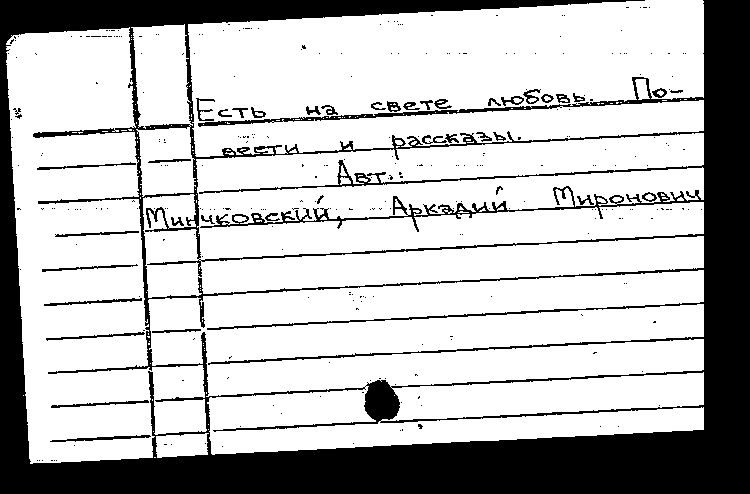 Есть на свете любовь. По-
вести и рассказы.
Авт.:
Минчковский, Аркадий Миронович